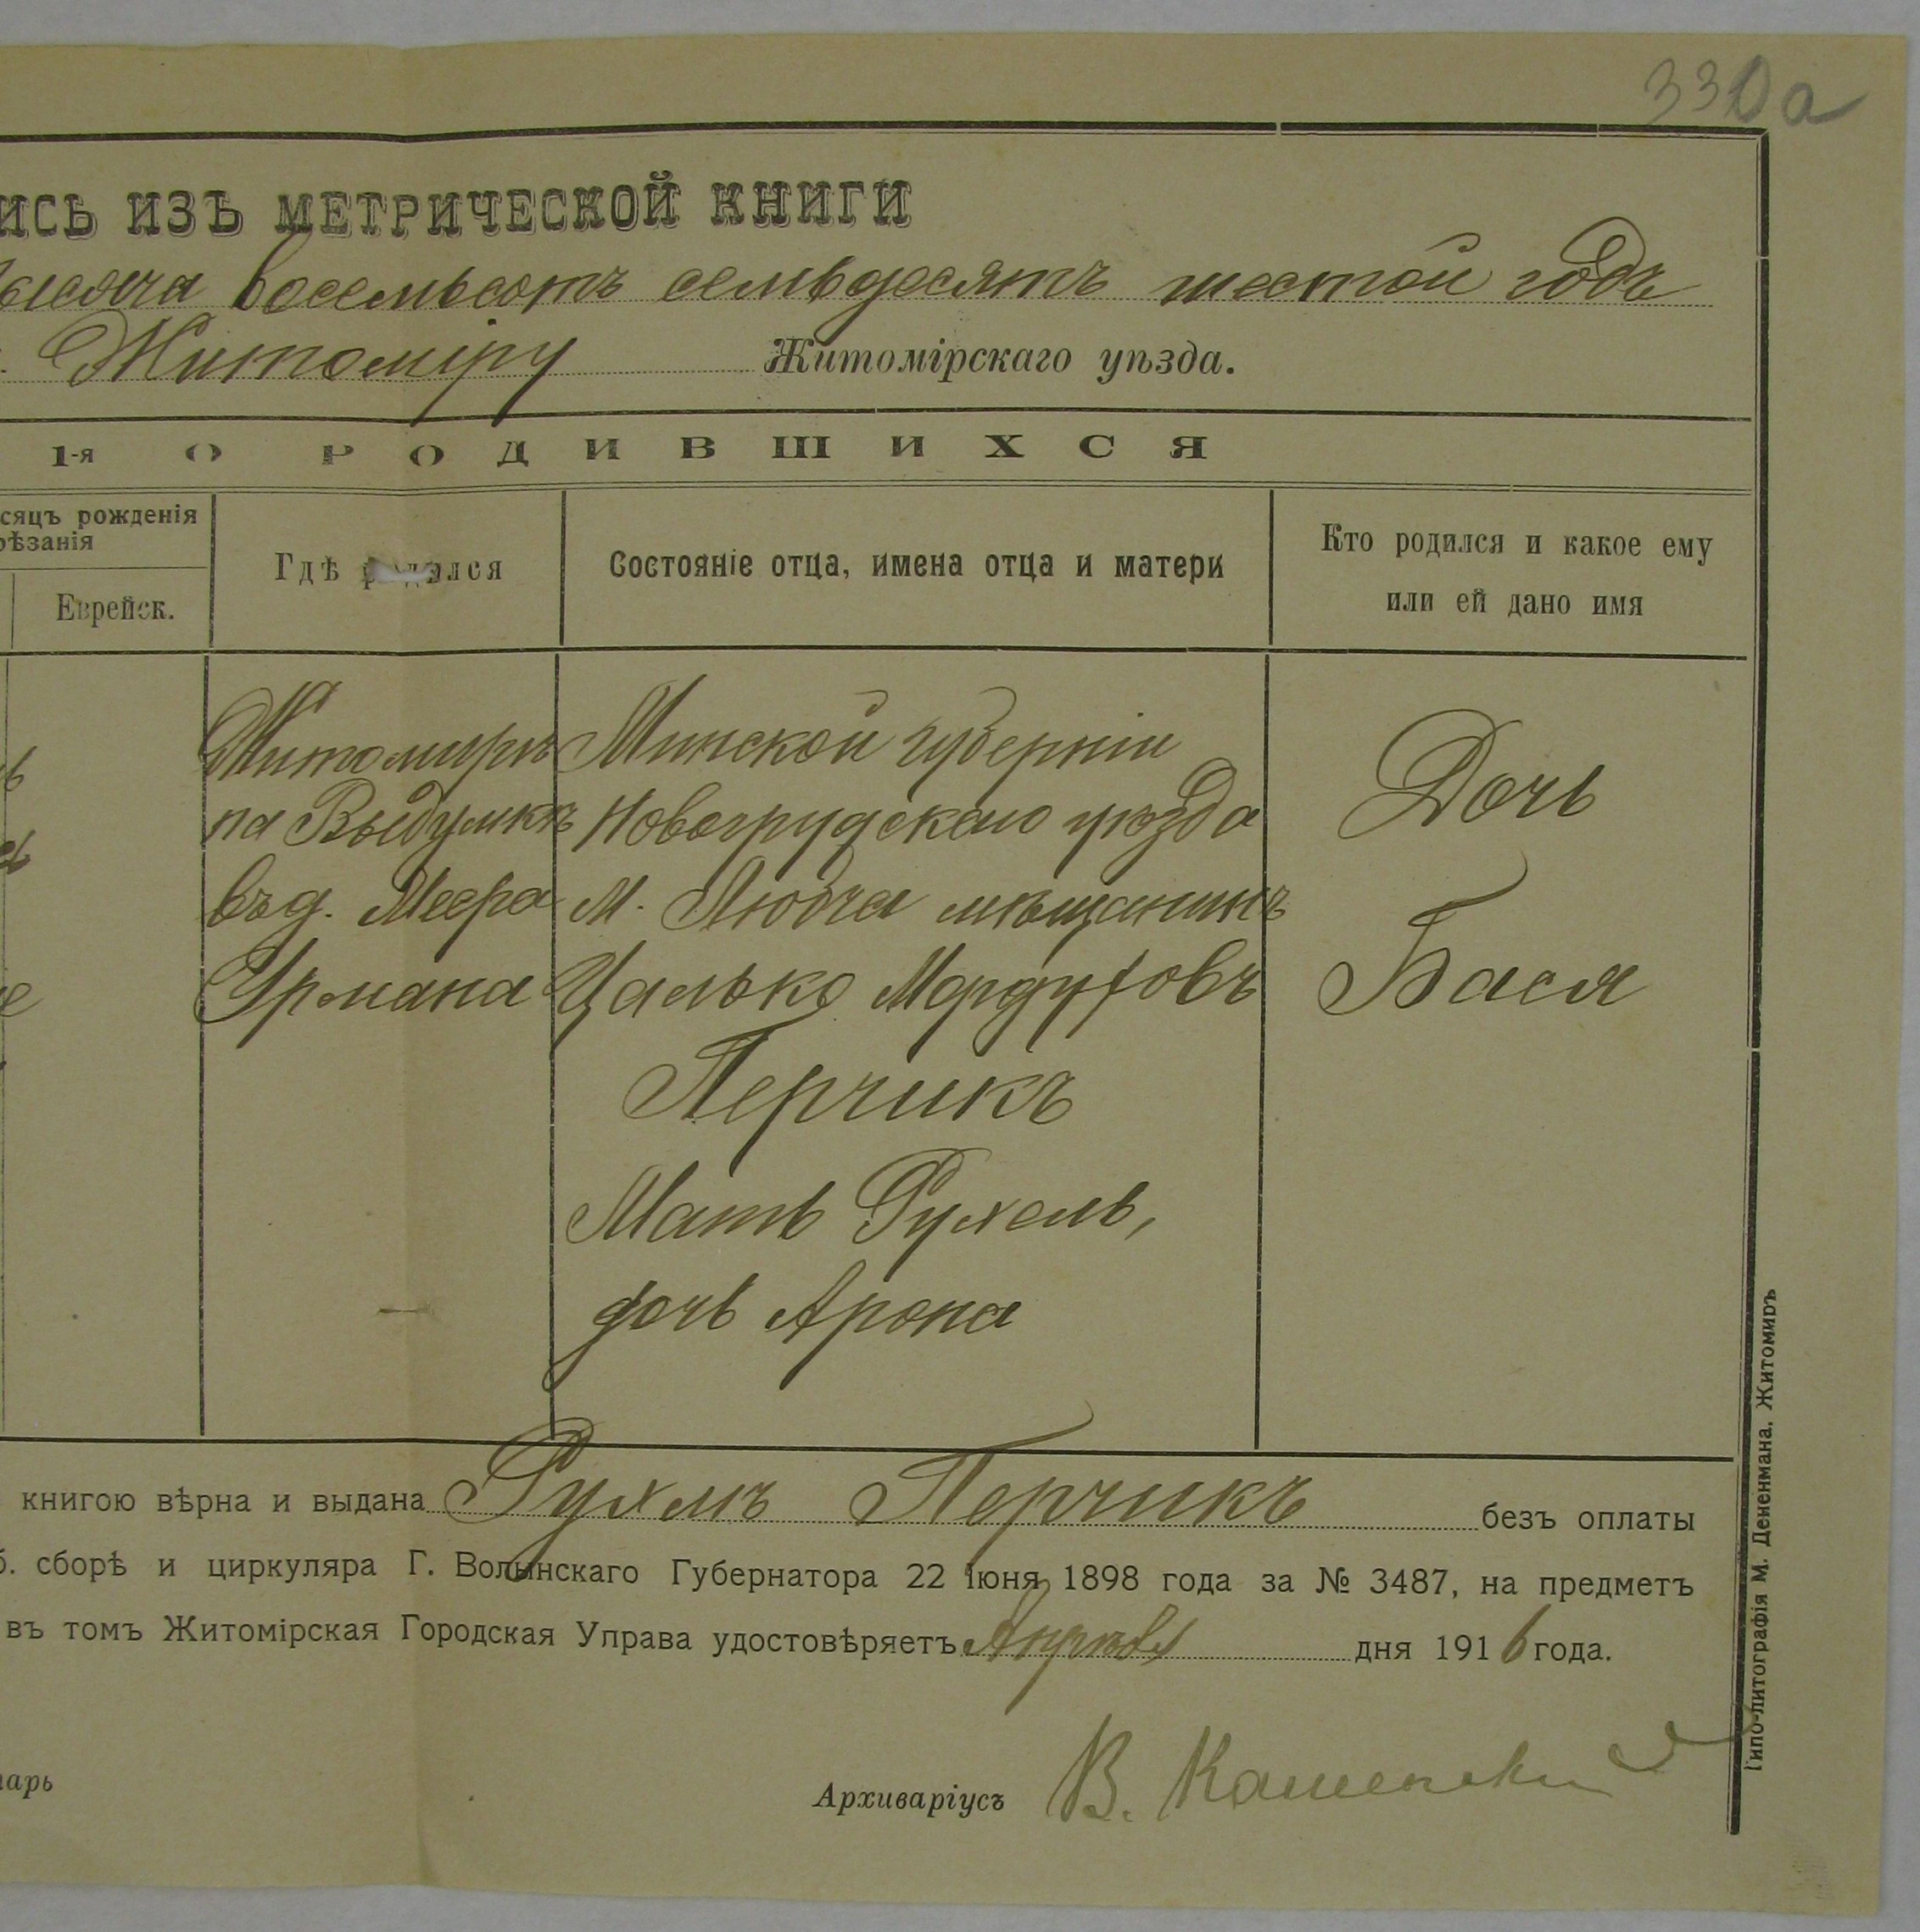 330а
ИСЬ ИЗЪ МЕТРИЧЕСКОЙ КНИГИ
тысяча восемьсотъ семьдесятъ шестой годъ
Житоміру Житомірскаго уѣзда.
1-я О РОДИВШИХСЯ
сяцъ рожденія
рѣзанія
Еврейск.
Гдѣ родился
Состояніе отца, имена отца и матери
Кто родился и какое ему
или ей дано имя
Житомирѣ
на Выдумкѣ
въ д. Меера
Урмана
Минской губерніи
Новогрудскаго уѣзда
М. Любча мѣщанинъ
Цалько Мордуховъ
Перчикъ
Мать Рухель,
дочь Арона
Дочь
Бася
книгою вѣрна и выдана Рухль Перчикъ безъ оплаты
б. сборѣ и циркуляра Г. Волынскаго Губернатора 22 Іюня 1898 года за № 3487, на предметъ
въ томъ Житомірская Городская Управа удостовѣряетъ Апрѣля дня 1916 года.
тарь
Архиваріусъ В.
Типо-литографія М. Дененмана. Житомиръ